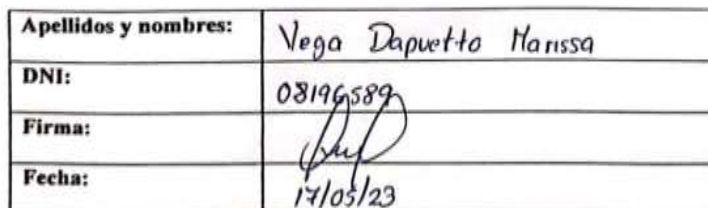 Apellidos y nombres: Vega Dapuetto Marissa
DNI: 08196589
Firma:
Fecha: 17/05/23